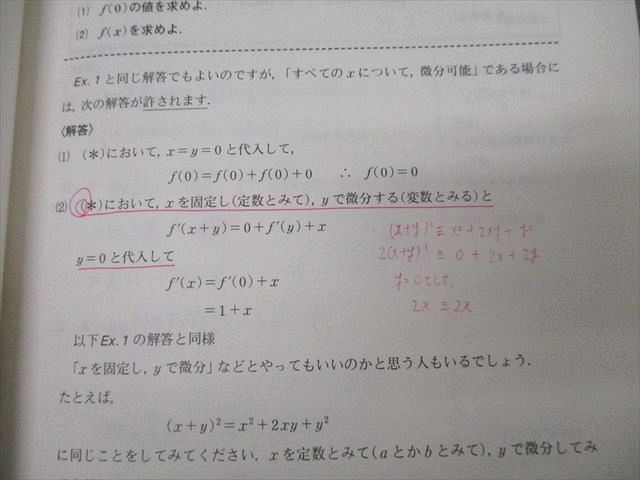 (1) f(0)の値を求めよ.
(2) f(x)を求めよ.
Ex. 1 と同じ解答でもよいのですが,「すべての x について, 微分可能」である場合に
は, 次の解答が許されます.
〈解答〉
(1) (*)において, x=y=0 と代入して,
f(0)=f(0)+f(0)+0 ∴ f(0)=0
(2) (*)において, x を固定し(定数とみて), y で微分する(変数とみる)と
f′(x+y)=0+f′(y)+x
(x+y)² ≡ x²+2xy+y²
2(x+y)¹ ≡ 0+2x+2y
y=0 と代入して
y=0として.
f′(x)=f′(0)+x
2x ≡ 2x
=1+x
以下 Ex. 1 の解答と同様
「x を固定し, y で微分」などとやってもいいのかと思う人もいるでしょう.
たとえば,
(x+y)²=x²+2xy+y²
に同じことをしてみてください. x を定数とみて(a とか b とみて), y で微分してみ